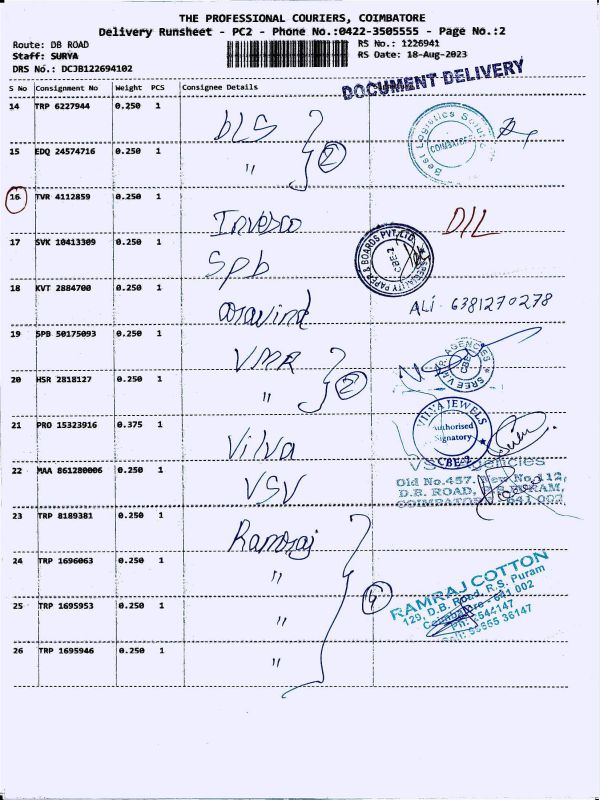 THE PROFESSIONAL COURIERS, COIMBATORE
Delivery Runsheet - PC2 - Phone No.:0422-3505555 - Page No.:2
Route: DB ROAD
RS No.: 1226941
Staff: SURYA
RS Date: 18-Aug-2023
DRS No.: DCJB122694102
DOCUMENT DELIVERY
S No Consignment No Weight PCS Consignee Details
14 TRP 6227944 0.250 1 DLS
Best Logistics
COIMBATORE
15 EDQ 24574716 0.250 1 "
2
16 TVR 4112859 0.250 1 Invesco DIL
17 SVK 10413309 0.250 1 Spb
SPECIALITY PAPER & BOARDS PVT.LTD.
CBE-2
18 KVT 2884700 0.250 1 aravind
ALI 6381270278
19 SPB 50175093 0.250 1 VMR
SREE VMR AGENCIES
CBE
20 HSR 2818127 0.250 1 "
2
21 PRO 15323916 0.375 1 Vilva
VILVA JEWELS
Authorised
Signatory
CBE-2
22 MAA 861280006 0.250 1 VSV
VSV Agencies
Old No.457, New No.112,
D.B. ROAD, R.S.PURAM,
COIMBATORE - 641 002
23 TRP 8189381 0.250 1 Ramraj
24 TRP 1696063 0.250 1 "
4
RAMRAJ COTTON
129, D.B. Road, R.S. Puram
Coimbatore - 641 002
Ph: 2544147
36147
25 TRP 1695953 0.250 1 "
26 TRP 1695946 0.250 1 "